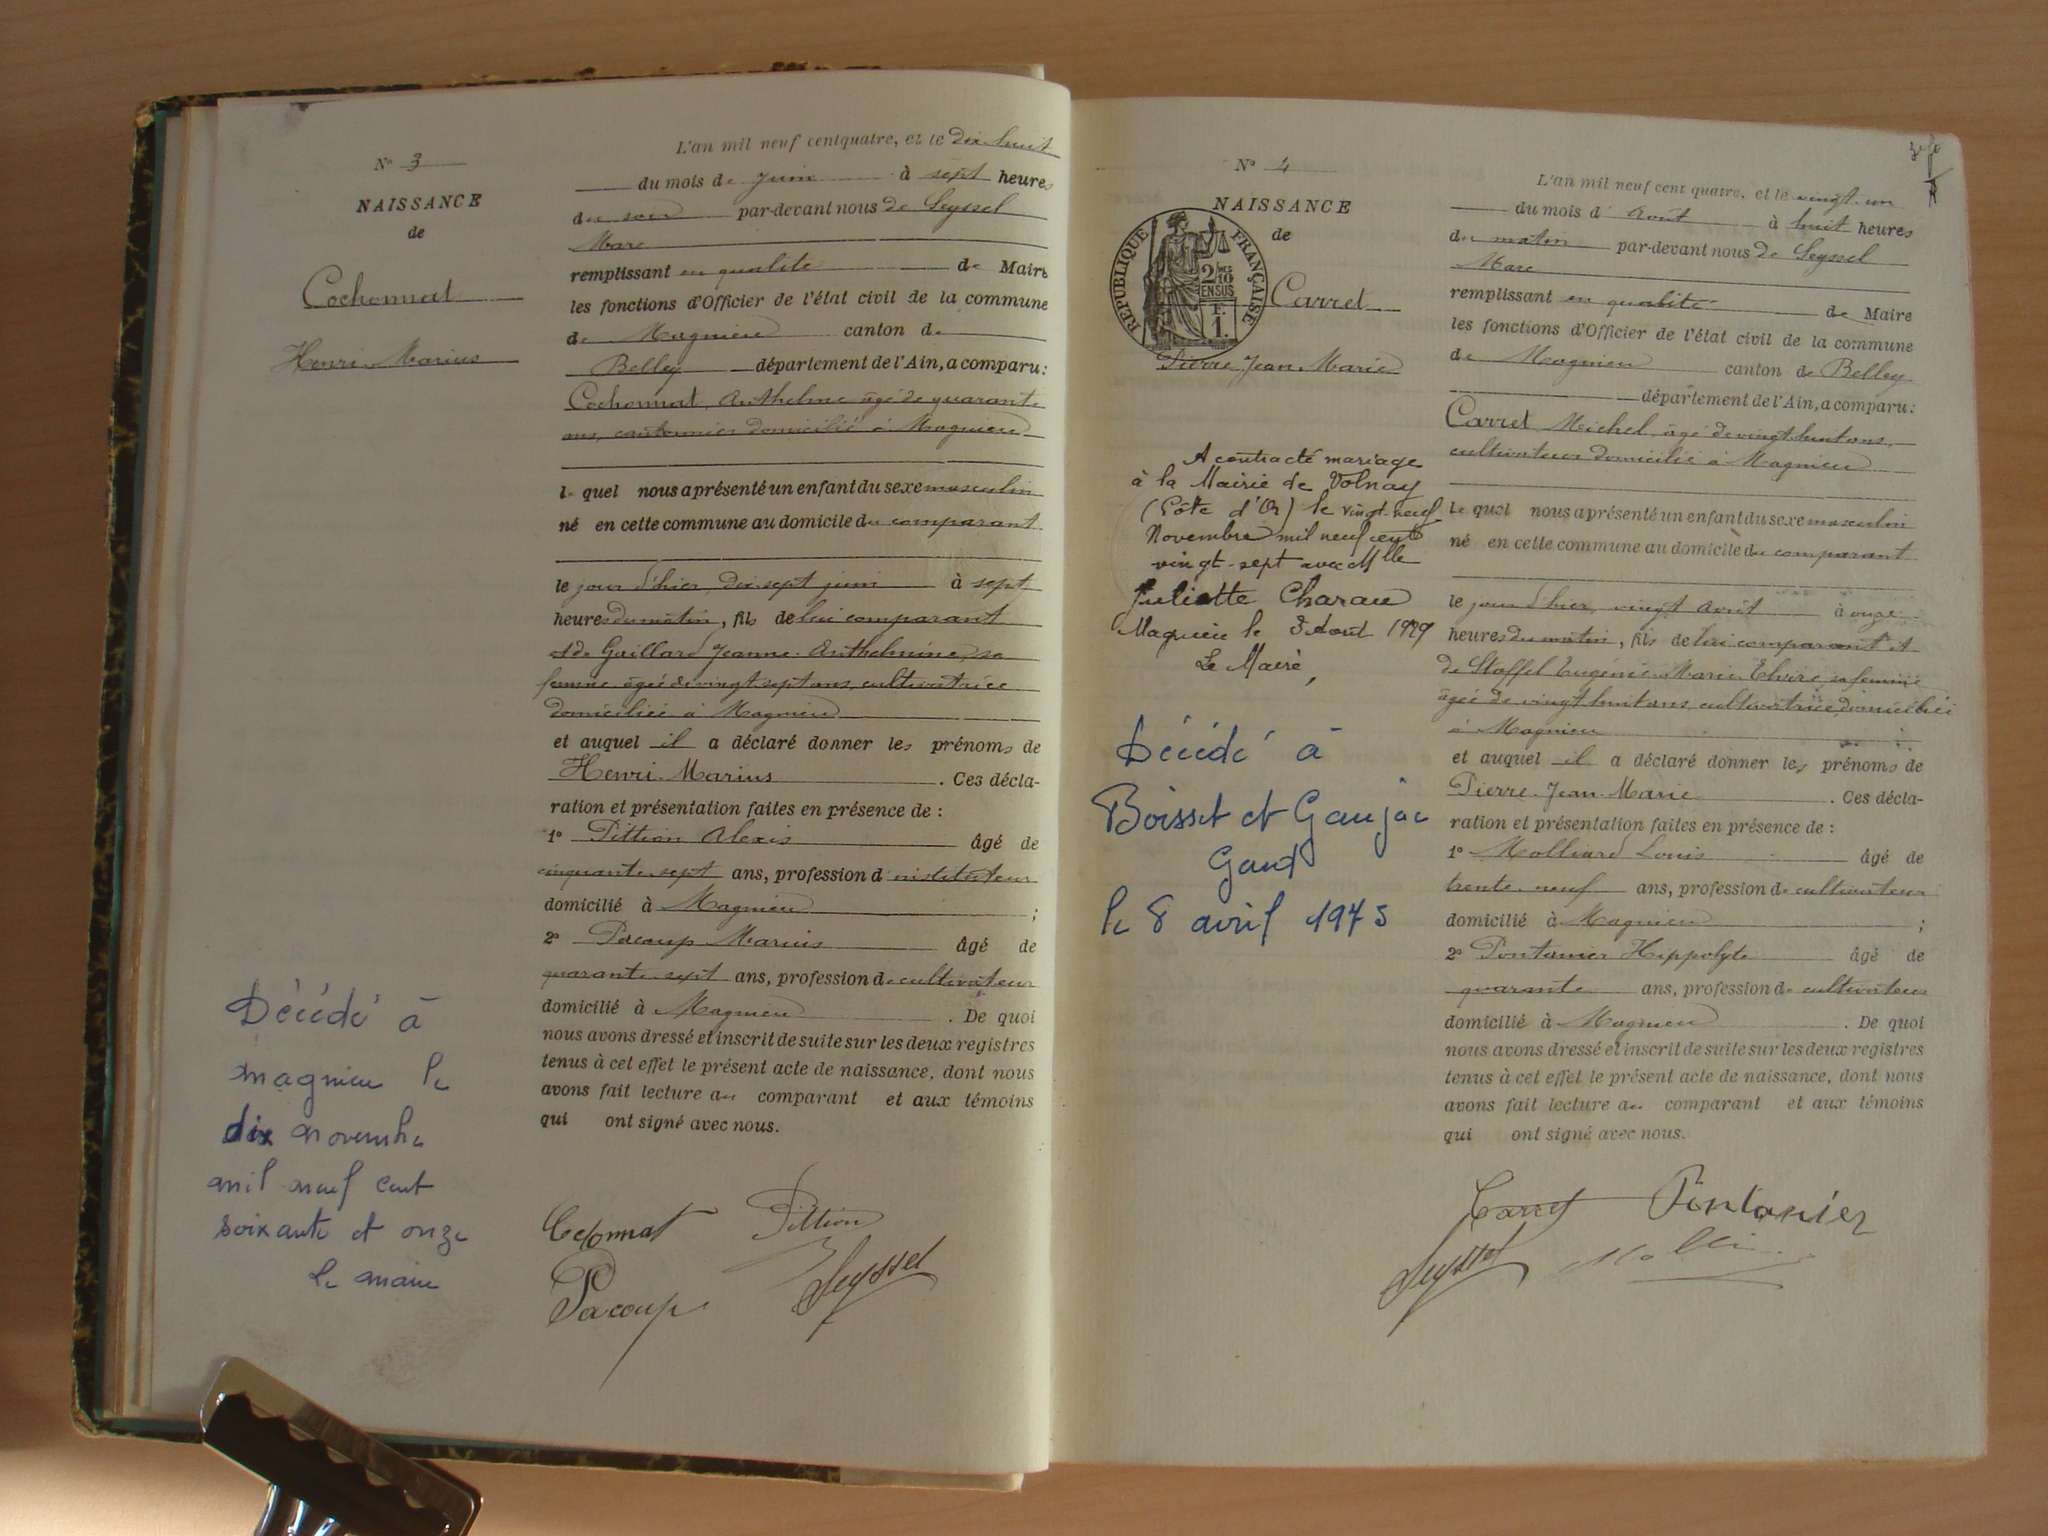 N° 3
NAISSANCE
de
Cochonnat
Henri Marius
L'an mil neuf cent quatre, et le dix-huit
du mois de juin à sept heures
du soir par-devant nous de Seyssel
Marc
remplissant en qualité de Maire
les fonctions d'Officier de l'état civil de la commune
de Magnieu canton de
Belley département de l'Ain, a comparu :
Cochonnat, Anthelme âgé de quarante
ans, cantonnier domicilié à Magnieu
lequel nous a présenté un enfant du sexe masculin
né en cette commune au domicile du comparant
le jour d'hier, dix-sept juin à sept
heures du matin, fils de lui comparant
et de Gaillard Jeanne Anthelmine, sa
femme âgée de vingt sept ans, cultivatrice
domiciliée à Magnieu
et auquel il a déclaré donner les prénoms de
Henri Marius. Ces décla-
ration et présentation faites en présence de :
1° Pittion Alexis âgé de
cinquante-sept ans, profession d'instituteur
domicilié à Magnieu ;
2° Pacoup Marius âgé de
quarante-sept ans, profession de cultivateur
domicilié à Magnieu. De quoi
nous avons dressé et inscrit de suite sur les deux registres
tenus à cet effet le présent acte de naissance, dont nous
avons fait lecture au comparant et aux témoins
qui ont signé avec nous.
Décédé à
magnieu le
dix novembre
mil neuf cent
soixante et onze
le maire
Cochonnat Pittion
Pacoup Seyssel
N° 4
NAISSANCE
de
RÉPUBLIQUE FRANÇAISE
2/10
EN SUS
F.
1.
Carret
Pierre Jean Marie
A contracté mariage
à la Mairie de Volnay
(Côte d'Or) le vingt-neuf
Novembre mil neuf cent
vingt-sept avec Mlle
Juliette Charau
Magnieu le 3 Août 1929
Le Maire,
Décédé à
Boisset et Gaujac
Gard
le 8 avril 1975
L'an mil neuf cent quatre, et le vingt-un
du mois d'Août à huit heures
du matin par-devant nous de Seyssel
Marc
remplissant en qualité de Maire
les fonctions d'Officier de l'état civil de la commune
de Magnieu canton de Belley
département de l'Ain, a comparu :
Carret Michel, âgé de vingt huit ans,
cultivateur domicilié à Magnieu
Lequel nous a présenté un enfant du sexe masculin
né en cette commune au domicile du comparant
le jour d'hier, vingt Août à onze
heures du matin, fils de lui comparant et
de Staffel Eugénie Marie Elvire sa femme
âgée de vingt huit ans, cultivatrice domiciliée
à Magnieu
et auquel il a déclaré donner les prénoms de
Pierre Jean Marie. Ces décla-
ration et présentation faites en présence de :
1° Molliard Louis âgé de
trente-neuf ans, profession de cultivateur
domicilié à Magnieu ;
2° Pontanier Hippolyte âgé de
quarante ans, profession de cultivateur
domicilié à Magnieu. De quoi
nous avons dressé et inscrit de suite sur les deux registres
tenus à cet effet le présent acte de naissance, dont nous
avons fait lecture au comparant et aux témoins
qui ont signé avec nous.
Carret Pontanier
Seyssel